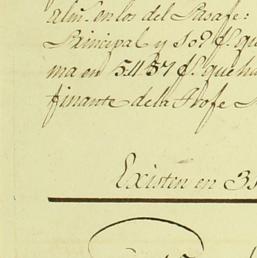 alin. en los del Pasafe:
Principal y 309 ps. que
ma en 5.1137 ps. que ha
finante de la Profe
Existen en 3